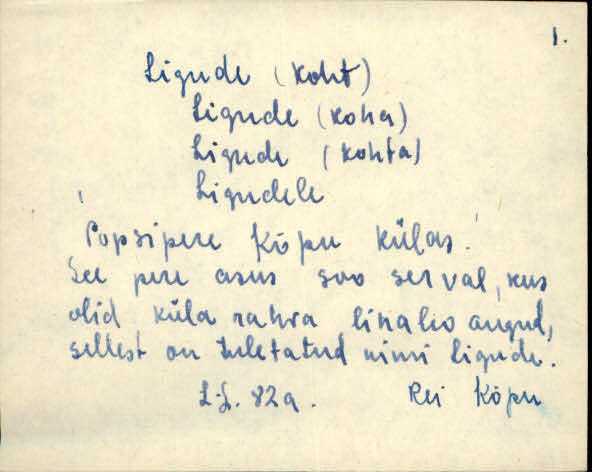 1.
Ligude (koht)
Ligude (koha)
Ligude (kohta)
Ligudele
Popsipere Kõpu külas.
See pere asus soo serval, kus
olid küla rahva linaleo augud,
sellest on tuletatud nimi ligude.
82a. Rei Kõpu